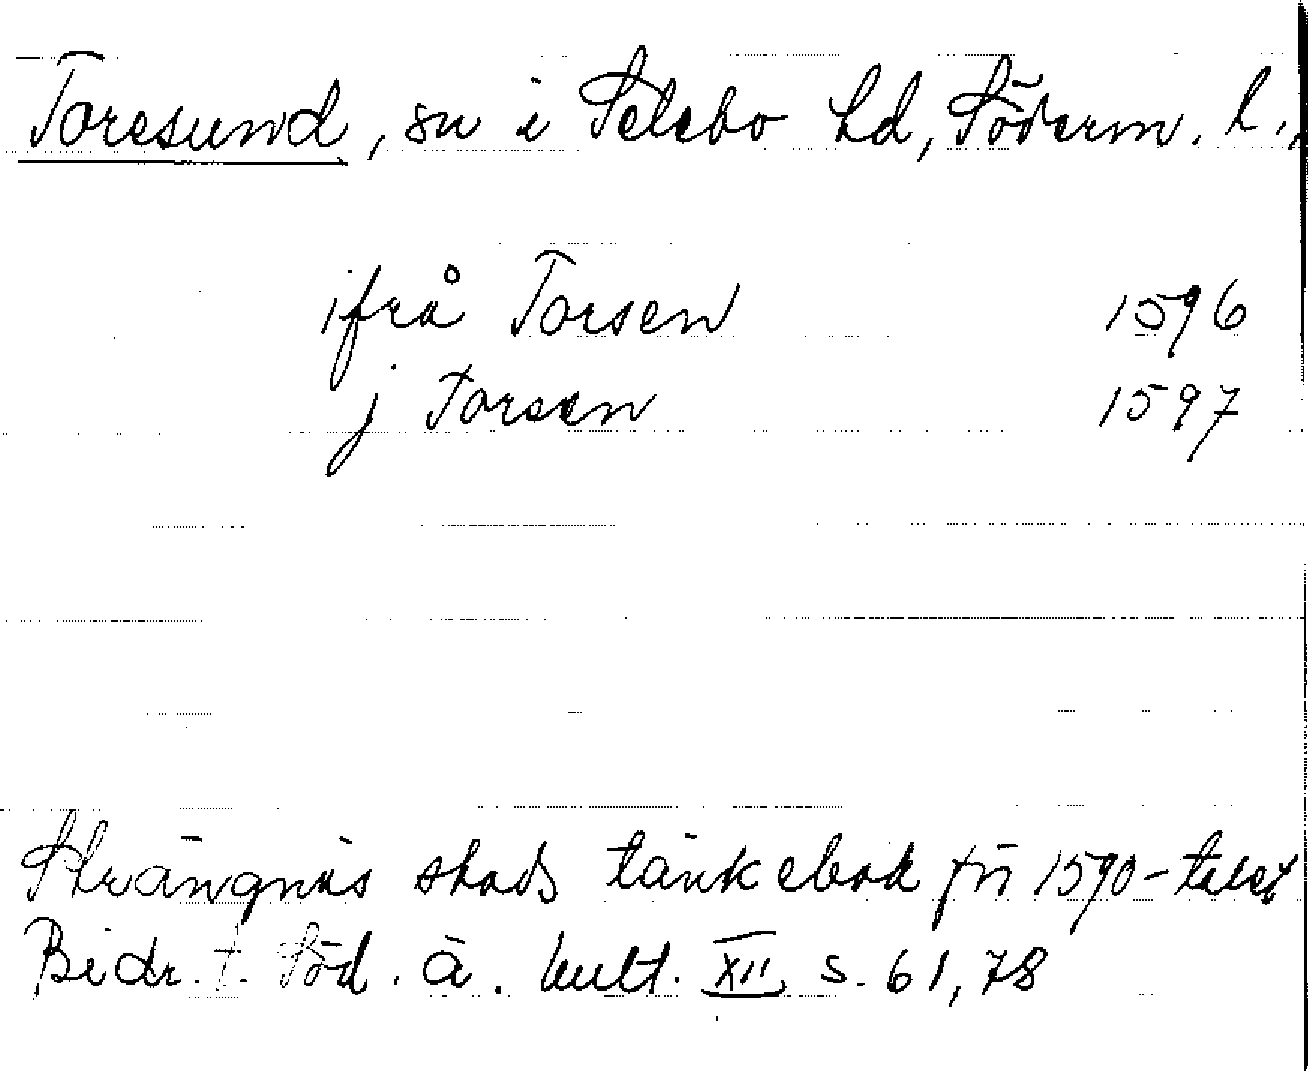 Toresund, sn i Selebo hd, Söderm. l.,
ifrå Torsen 1596
j Torsen 1597
Strängnäs stads tänkebok fr 1590-talet
Bidr. t. Söd. ä. kult. XII s. 61, 78